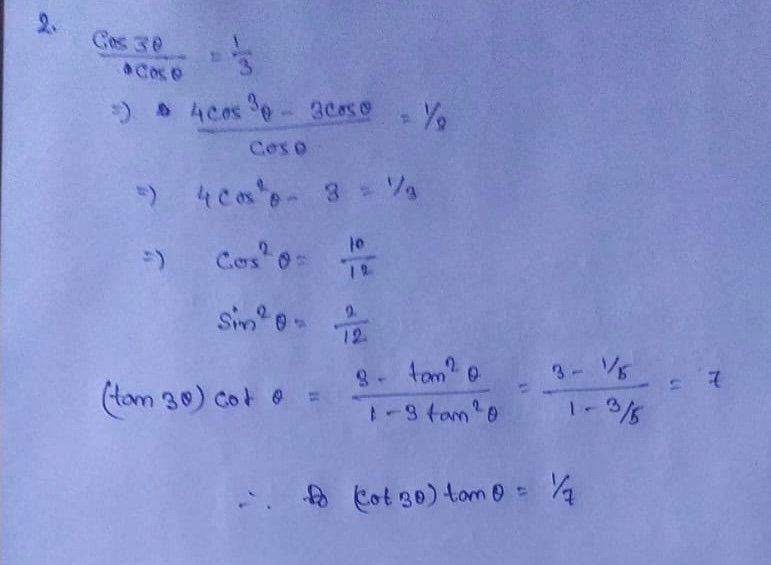 2.
cos 3θ / cos θ = 1/3
=) 4cos³θ - 3cosθ / cosθ = 1/3
=) 4cos²θ - 3 = 1/3
=) cos²θ = 10/12
sin²θ = 2/12
(tan 3θ) cot θ = 3 - tan²θ / 1 - 3 tan²θ = 3 - 1/5 / 1 - 3/5 = 7
∴ (cot 3θ) tan θ = 1/7